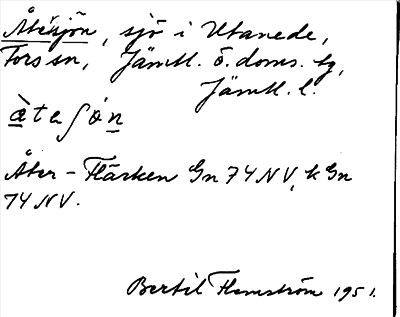 Åtésjön, sjö i Utanede,
Fors sn, Jämtl. ö. doms. tg,
Jämtl. l.
Åter-Flärken Gn 74 NV, k Gn
74 NV.
Bertil Flemström 1951.